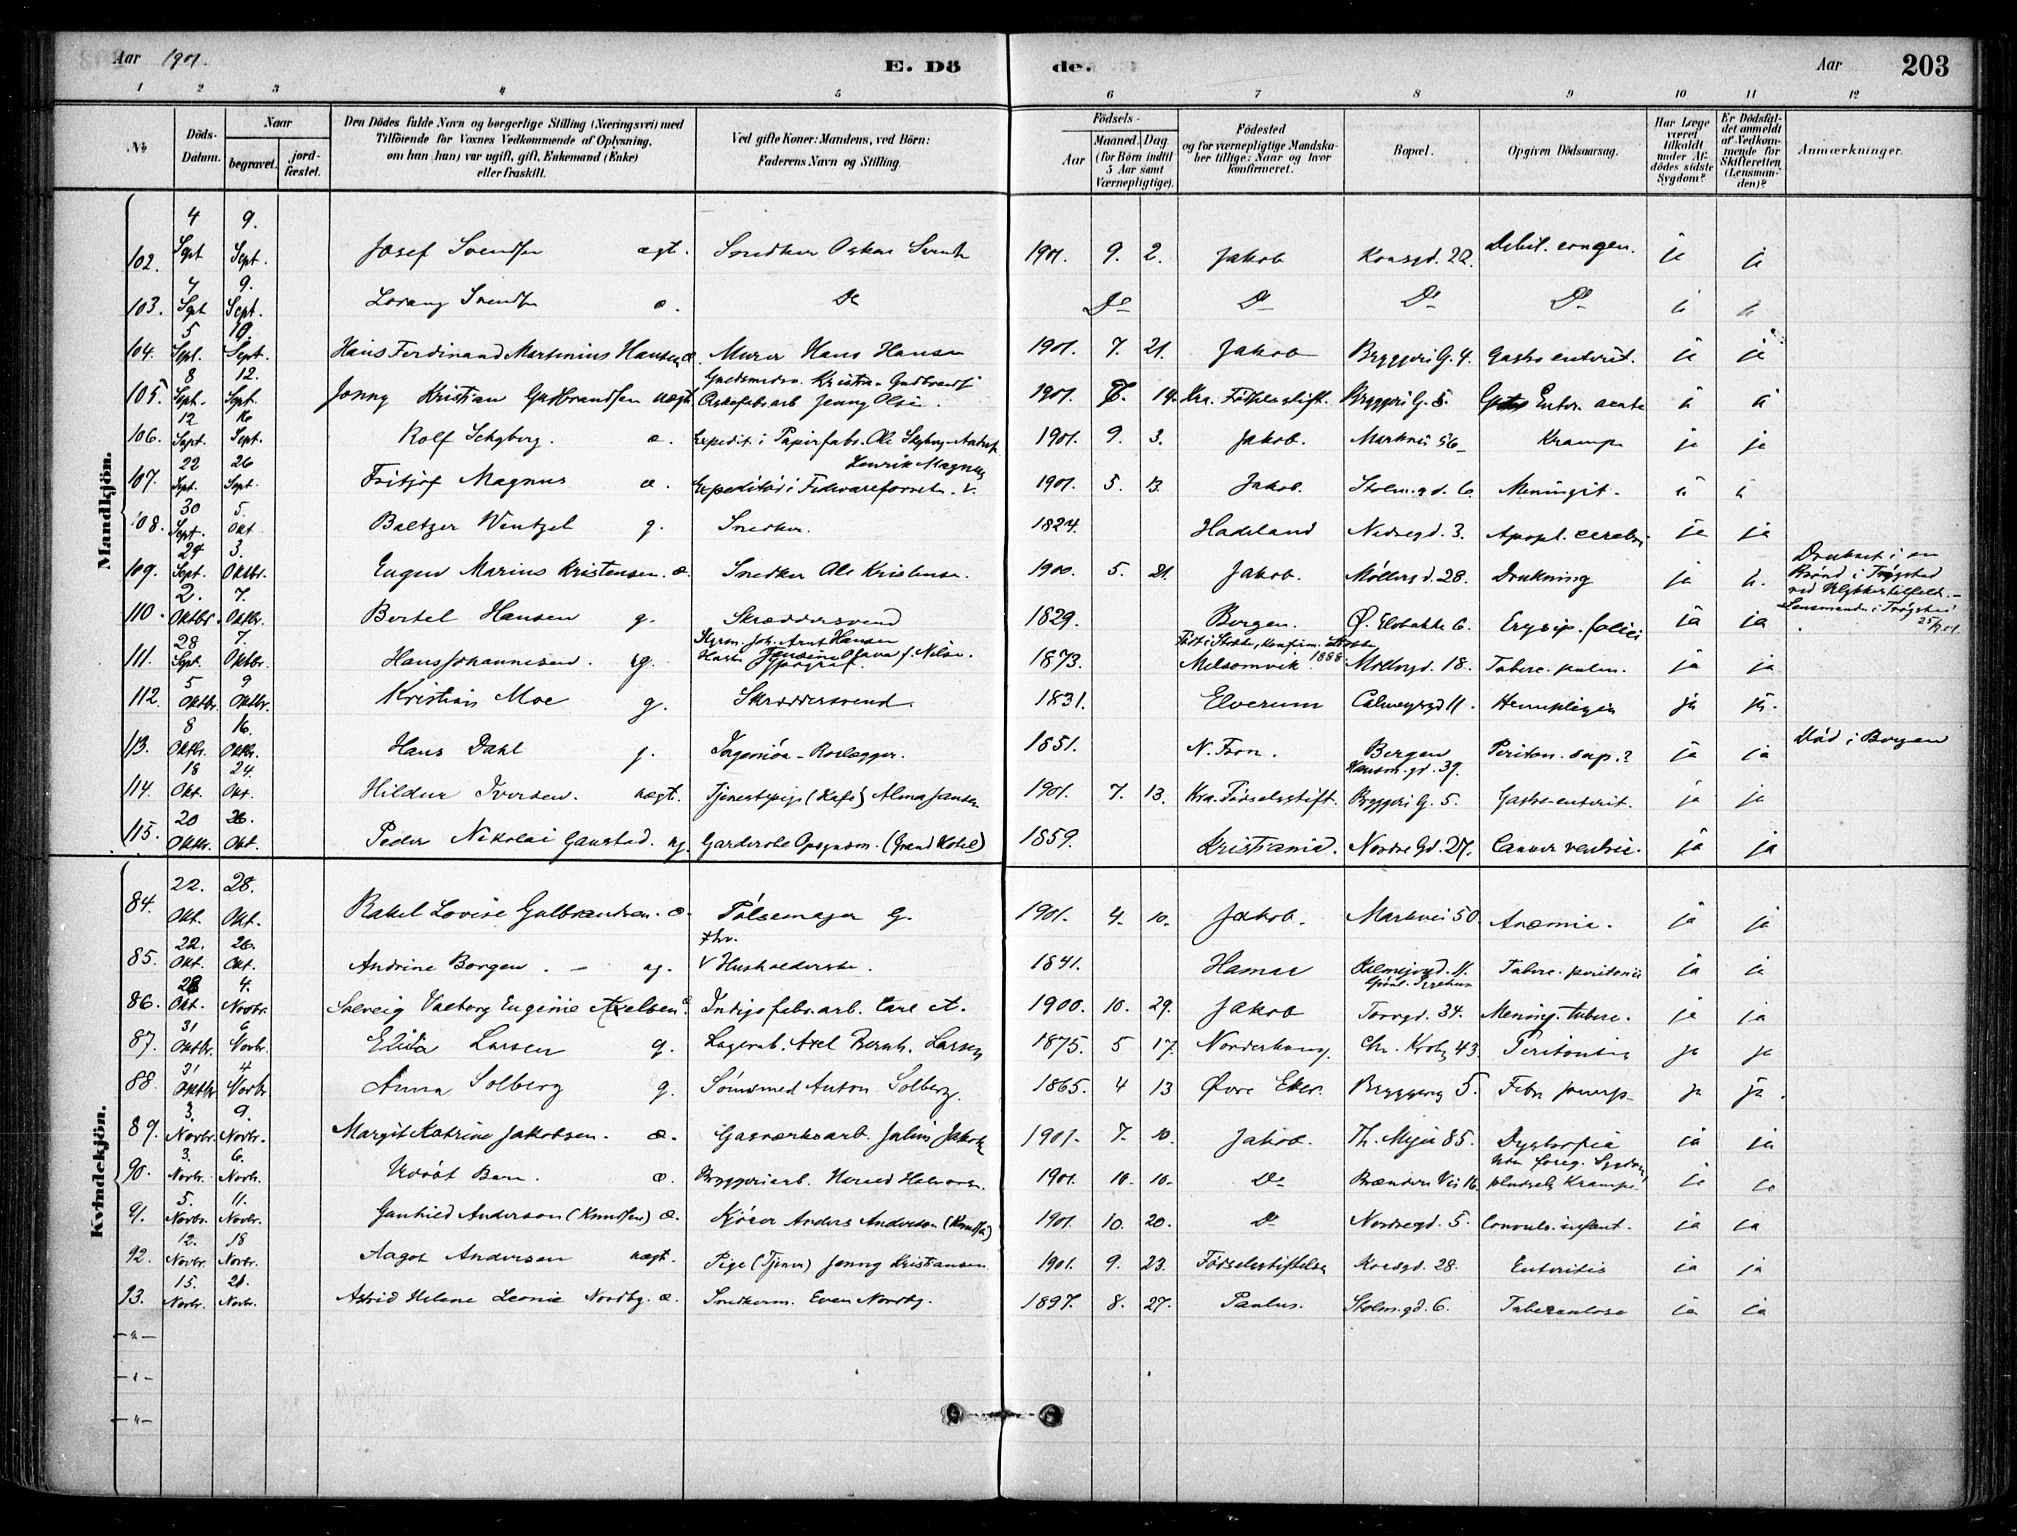 Aar 1901.
E. Döde.
Aar
203
1 2 3 4 5 6 7 8 9 10 11 12
No
Döds-Datum.
Naar
begravet.
jordfæstet.
Den Dödes fulde Navn og borgerlige Stilling (Næringsvei) med
Tilföiende for Voxnes Vedkommende af Oplysning,
om han (hun) var ugift, gift, Enkemand (Enke)
eller fraskilt.
Ved gifte Koner: Mandens, ved Börn:
Faderens Navn og Stilling.
Födsels-
Aar
Maaned. Dag
(for Börn indtil
5 Aar samt
Værnepligtige).
Födested
og for værnepligtige Mandskaber tillige: Naar og hvor
konfirmeret.
Bopæl.
Opgiven Dödsaarsag.
Har Læge
været
tilkaldt
under Afdödes sidste
Sygdom?
Er Dödsfaldet anmeldt
af Vedkommende for
Skifteretten
(Lensmanden)?
Anmærkninger.
Mandkjön.
102. 4 Sept 9. Sept. Josef Svendsen ægt. Snedker Oskar 1901. 9. 2. Jakob 22. Debil. congen. ja ja
103. 4 Sept 9. Sept. Svendsen æ. Do Do Do Do Do
104. 5 Sept. 10. Sept. Hans Ferdinand Martinius Hansen æ. Murer Hans Hansen 1901. 7. 21. Jakob Bryggeri G. 4. Gastro enterit. ja ja
105. 8 Sept. 12. Sept. Jonny Kristian Gudbrandsen uægt. Kristian Gudbrands Jenny Olsen. 1901. 14. Kra. Födselsstift. Bryggeri G. 5. Enter. acuta
106. 12 Sept. 16 Sept. Rolf æ. Expedit. i Papirfabr. Ole 1901. 9. 3. Jakob. Markvei 56 Krampe ja ja
107. 22 Sept. 26 Sept. Fritjof Magnus æ. Henrik Magnus 1901. 5. 13. Jakob. Stolm.gd. 6 Meningit.
108. 30 Sept. 5. Okt. Baltzer Wentzel g. Snedker. 1824. Hadeland Nedregd. 3. Apopl. cerebri ja ja
109. 24 Sept. 3. Oktbr. Eugen Marius Kristensen. æ. Snedker Ole Kristensen. 1900. 5. 21. Jakob. Möllergd. 28. Drukning ja Druknet i en Brönd i Trögstad
110. 2. Oktbr. 7. Oktbr. Bertel Hansen g. Skræddersvend 1829. Bergen. 6. Erysip. faciei ja ja
111. 28 Sept. 7. Oktbr. Hans Johannesen. Typograf. 1873. Melsomvik 1888 Möllergd. 18. Tuberc. pulm. ja ja
112. 5 Oktbr. 9 Oktbr. Kristian Moe g. Skræddersvend. 1831. Elverum Calmeyergd 11. Hemiplegia ja ja.
113. 8 Oktbr. 16. Oktbr. Hans Dahl g. 1851. N. Fron. Bergen Hausm.gd. 39. Periton. sup.? ja ja Död i Bergen
114. 18 Okt. 24. Okt. Hildur Iversen. uægt. Tjenestepige (Kafé) Alma 1901. 7. 13. Kra. Födselsstift. Bryggeri G. 5. Gastro-enterit. ja ja
115. 20 Oktbr. 26. Okt. Peder Nikolai Gaustad. ug. Garderobe (Grand Hotel) 1859. Kristiania. Nordre Gd. 27. Cancer ventric. ja ja
Kvindekjön.
84. 22. Okt. 28. Okt. Rakel Lovise Gulbrandsen. æ. Pölsemager G. 1901. 4. 10. Jakob. Markvei 50. Anæmia. ja ja
85. 22. Okt. 26. Okt. Andrine Borgen. ug. Husholderske. 1841. Hamar 11. Tuberc. peritonit ja ja
86. 28 Okt. 4. Novbr. Solveig Valborg Eugenie Axelsen. æ. Indigofabr.arb. Carl A. 1900. 10. 29. Jakob Torvgd. 34. Mening. tuberc. ja ja
87. 31 Oktbr. 6 Novbr. Elida Larsen g. Lagerarb. Axel Bernh. Larsen 1875. 5 17. Norderhoug. Chr. 43. Peritonitis ja ja
88. 31 Oktbr 4 Novbr. Anna Solberg g. Anton Solberg. 1865. 4 13 Övre Eker. 5. Febr. puerp. ja ja.
89. 3. Novbr. 9. Novbr. Margit Katrine Jakobsen. æ. Gasværksarb. Julius 1901. 7. 10. Jakob. Th. Meyer 85. ja ja
90. 3. Novbr. 6. Novbr. Udöbt Barn. æ. Bryggeriarb. 1901. 10. 10. Do 16. Krampe. ja ja
91. 5. Novbr. 11. Novbr. Gunhild Anderson (Knudsen) æ. Anders Anderson (Knudsen) 1901. 10. 20. Do Nordregd. 5. Convuls. infant. ja ja
92. 12. Novbr. 18 Novbr. Aagot Andersen uægt. Pige (Tjener) Jenny Kristiansen 1901. 9. 23. Födselsstiftelsen Korsgd. 28. Enteritis ja ja
93. 15. Novbr. 21. Novbr. Astrid Helene Leonie Nordby. æ. Snedkerm. Even Nordby. 1897. 8. 27. Paulus. Stolm.gd. 6. Tuberculose ja ja